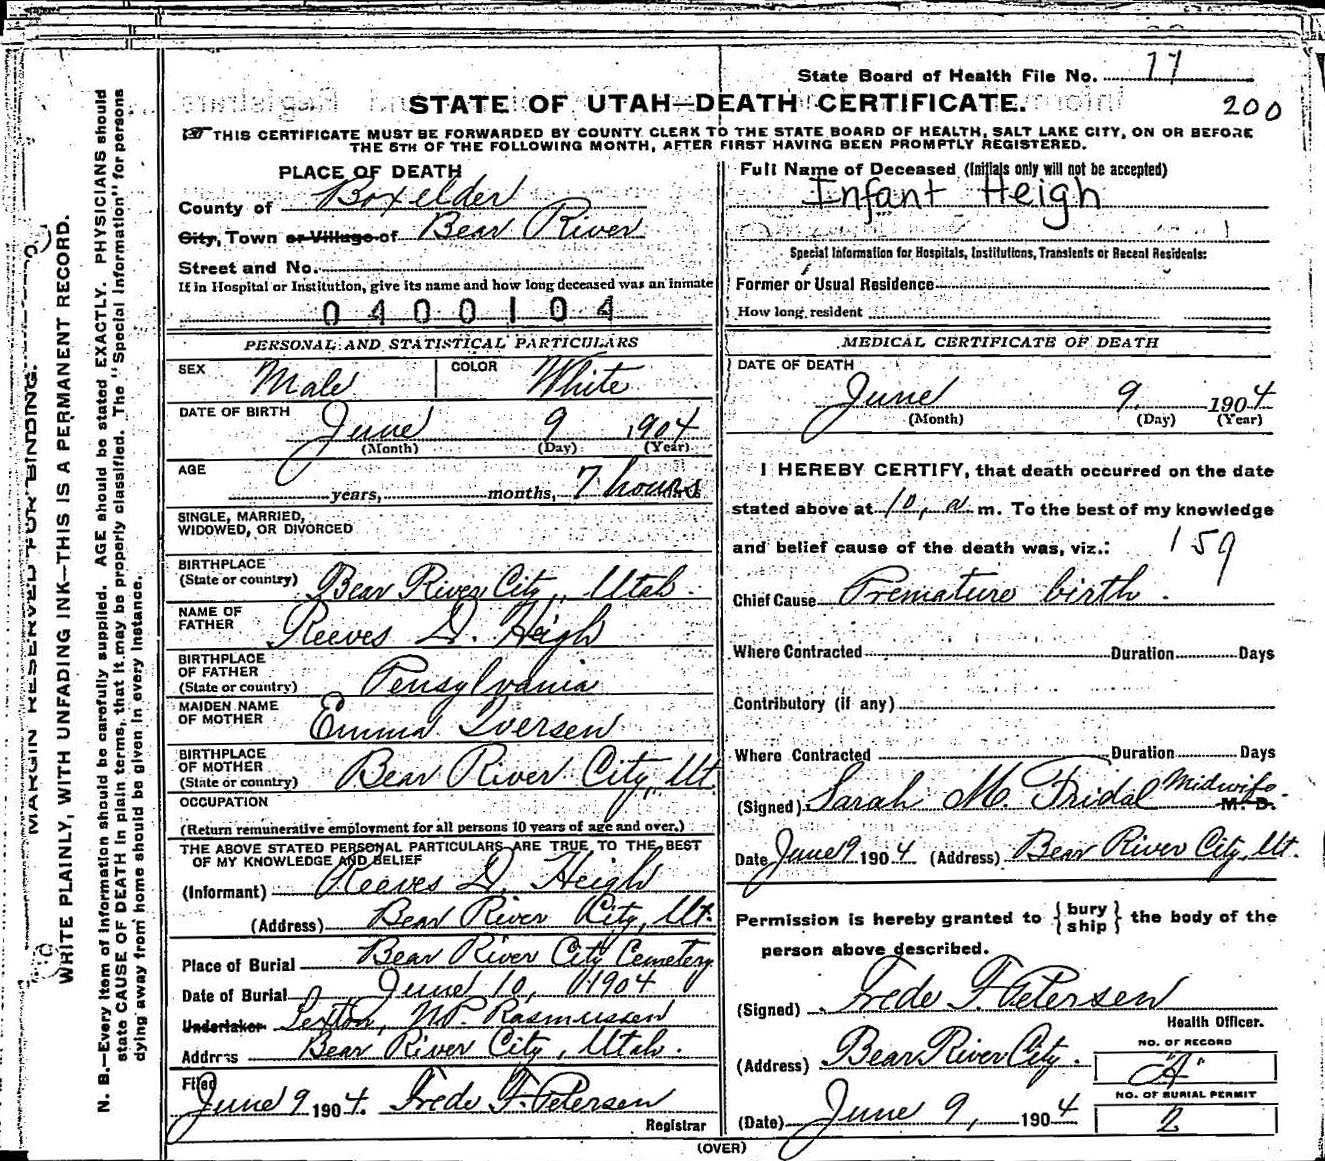 State Board of Health File No. 17
STATE OF UTAH—DEATH CERTIFICATE.
200
THIS CERTIFICATE MUST BE FORWARDED BY COUNTY CLERK TO THE STATE BOARD OF HEALTH, SALT LAKE CITY, ON OR BEFORE
THE 5TH OF THE FOLLOWING MONTH, AFTER FIRST HAVING BEEN PROMPTLY REGISTERED.
MARGIN RESERVED FOR BINDING.
WRITE PLAINLY, WITH UNFADING INK—THIS IS A PERMANENT RECORD.
N. B.—Every item of information should be carefully supplied. AGE should be stated EXACTLY. PHYSICIANS should
state CAUSE OF DEATH in plain terms, that it may be properly classified. The "Special Information" for persons
dying away from home should be given in every instance.
PLACE OF DEATH
County of Boxelder
City, Town or Village of Bear River
Street and No.
If in Hospital or Institution, give its name and how long deceased was an inmate
0400104
PERSONAL AND STATISTICAL PARTICULARS
SEX Male COLOR White
DATE OF BIRTH
June 9 1904
(Month) (Day) (Year)
AGE
years, months, 7 hours
SINGLE, MARRIED,
WIDOWED, OR DIVORCED
BIRTHPLACE
(State or country) Bear River City, Utah.
NAME OF
FATHER Reeves D. Heigh
BIRTHPLACE
OF FATHER
(State or country) Pensylvania
MAIDEN NAME
OF MOTHER Emma Iversen
BIRTHPLACE
OF MOTHER
(State or country) Bear River City, Ut.
OCCUPATION
(Return remunerative employment for all persons 10 years of age and over.)
THE ABOVE STATED PERSONAL PARTICULARS ARE TRUE TO THE BEST
OF MY KNOWLEDGE AND BELIEF
(Informant) Reeves D. Heigh
(Address) Bear River City, Ut.
Place of Burial Bear River City Cemetery
Date of Burial June 10, 1904
Undertaker Sexton, N.P. Rasmussen
Address Bear River City, Utah.
Filed
June 9 1904. Frede F. Petersen
Registrar
Full Name of Deceased (Initials only will not be accepted)
Infant Heigh
Special Information for Hospitals, Institutions, Transients or Recent Residents:
Former or Usual Residence
How long resident
MEDICAL CERTIFICATE OF DEATH
DATE OF DEATH
June 9, 1904
(Month) (Day) (Year)
I HEREBY CERTIFY, that death occurred on the date
stated above at 10, a. m. To the best of my knowledge
and belief cause of the death was, viz.: 159
Chief Cause Premature birth.
Where Contracted Duration Days
Contributory (if any)
Where Contracted Duration Days
(Signed) Sarah M. Fridal Midwife. M. D.
Date June 9 1904 (Address) Bear River City, Ut.
Permission is hereby granted to { bury ship } the body of the
person above described.
(Signed) Frede F. Petersen
Health Officer.
(Address) Bear River City.
NO. OF RECORD
"A"
NO. OF BURIAL PERMIT
2
(Date) June 9, 1904
(OVER)